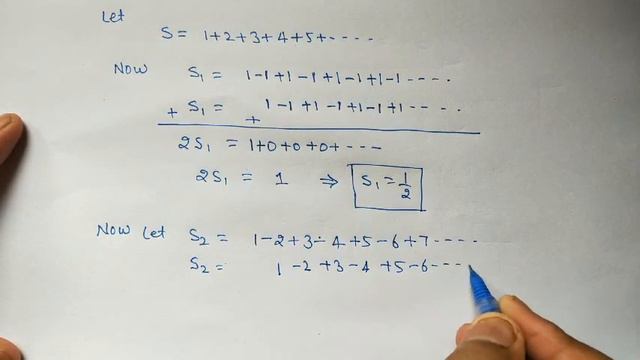 Let
S = 1+2+3+4+5+-----
Now S₁ = 1-1+1-1+1-1+1-1----.
+ S₁ = + 1-1+1-1+1-1+1-----.
2S₁ = 1+0+0+0+---
2S₁ = 1 ⇒ S₁ = 1/2
Now Let S₂ = 1-2+3-4+5-6+7-----
S₂ = 1-2+3-4+5-6----